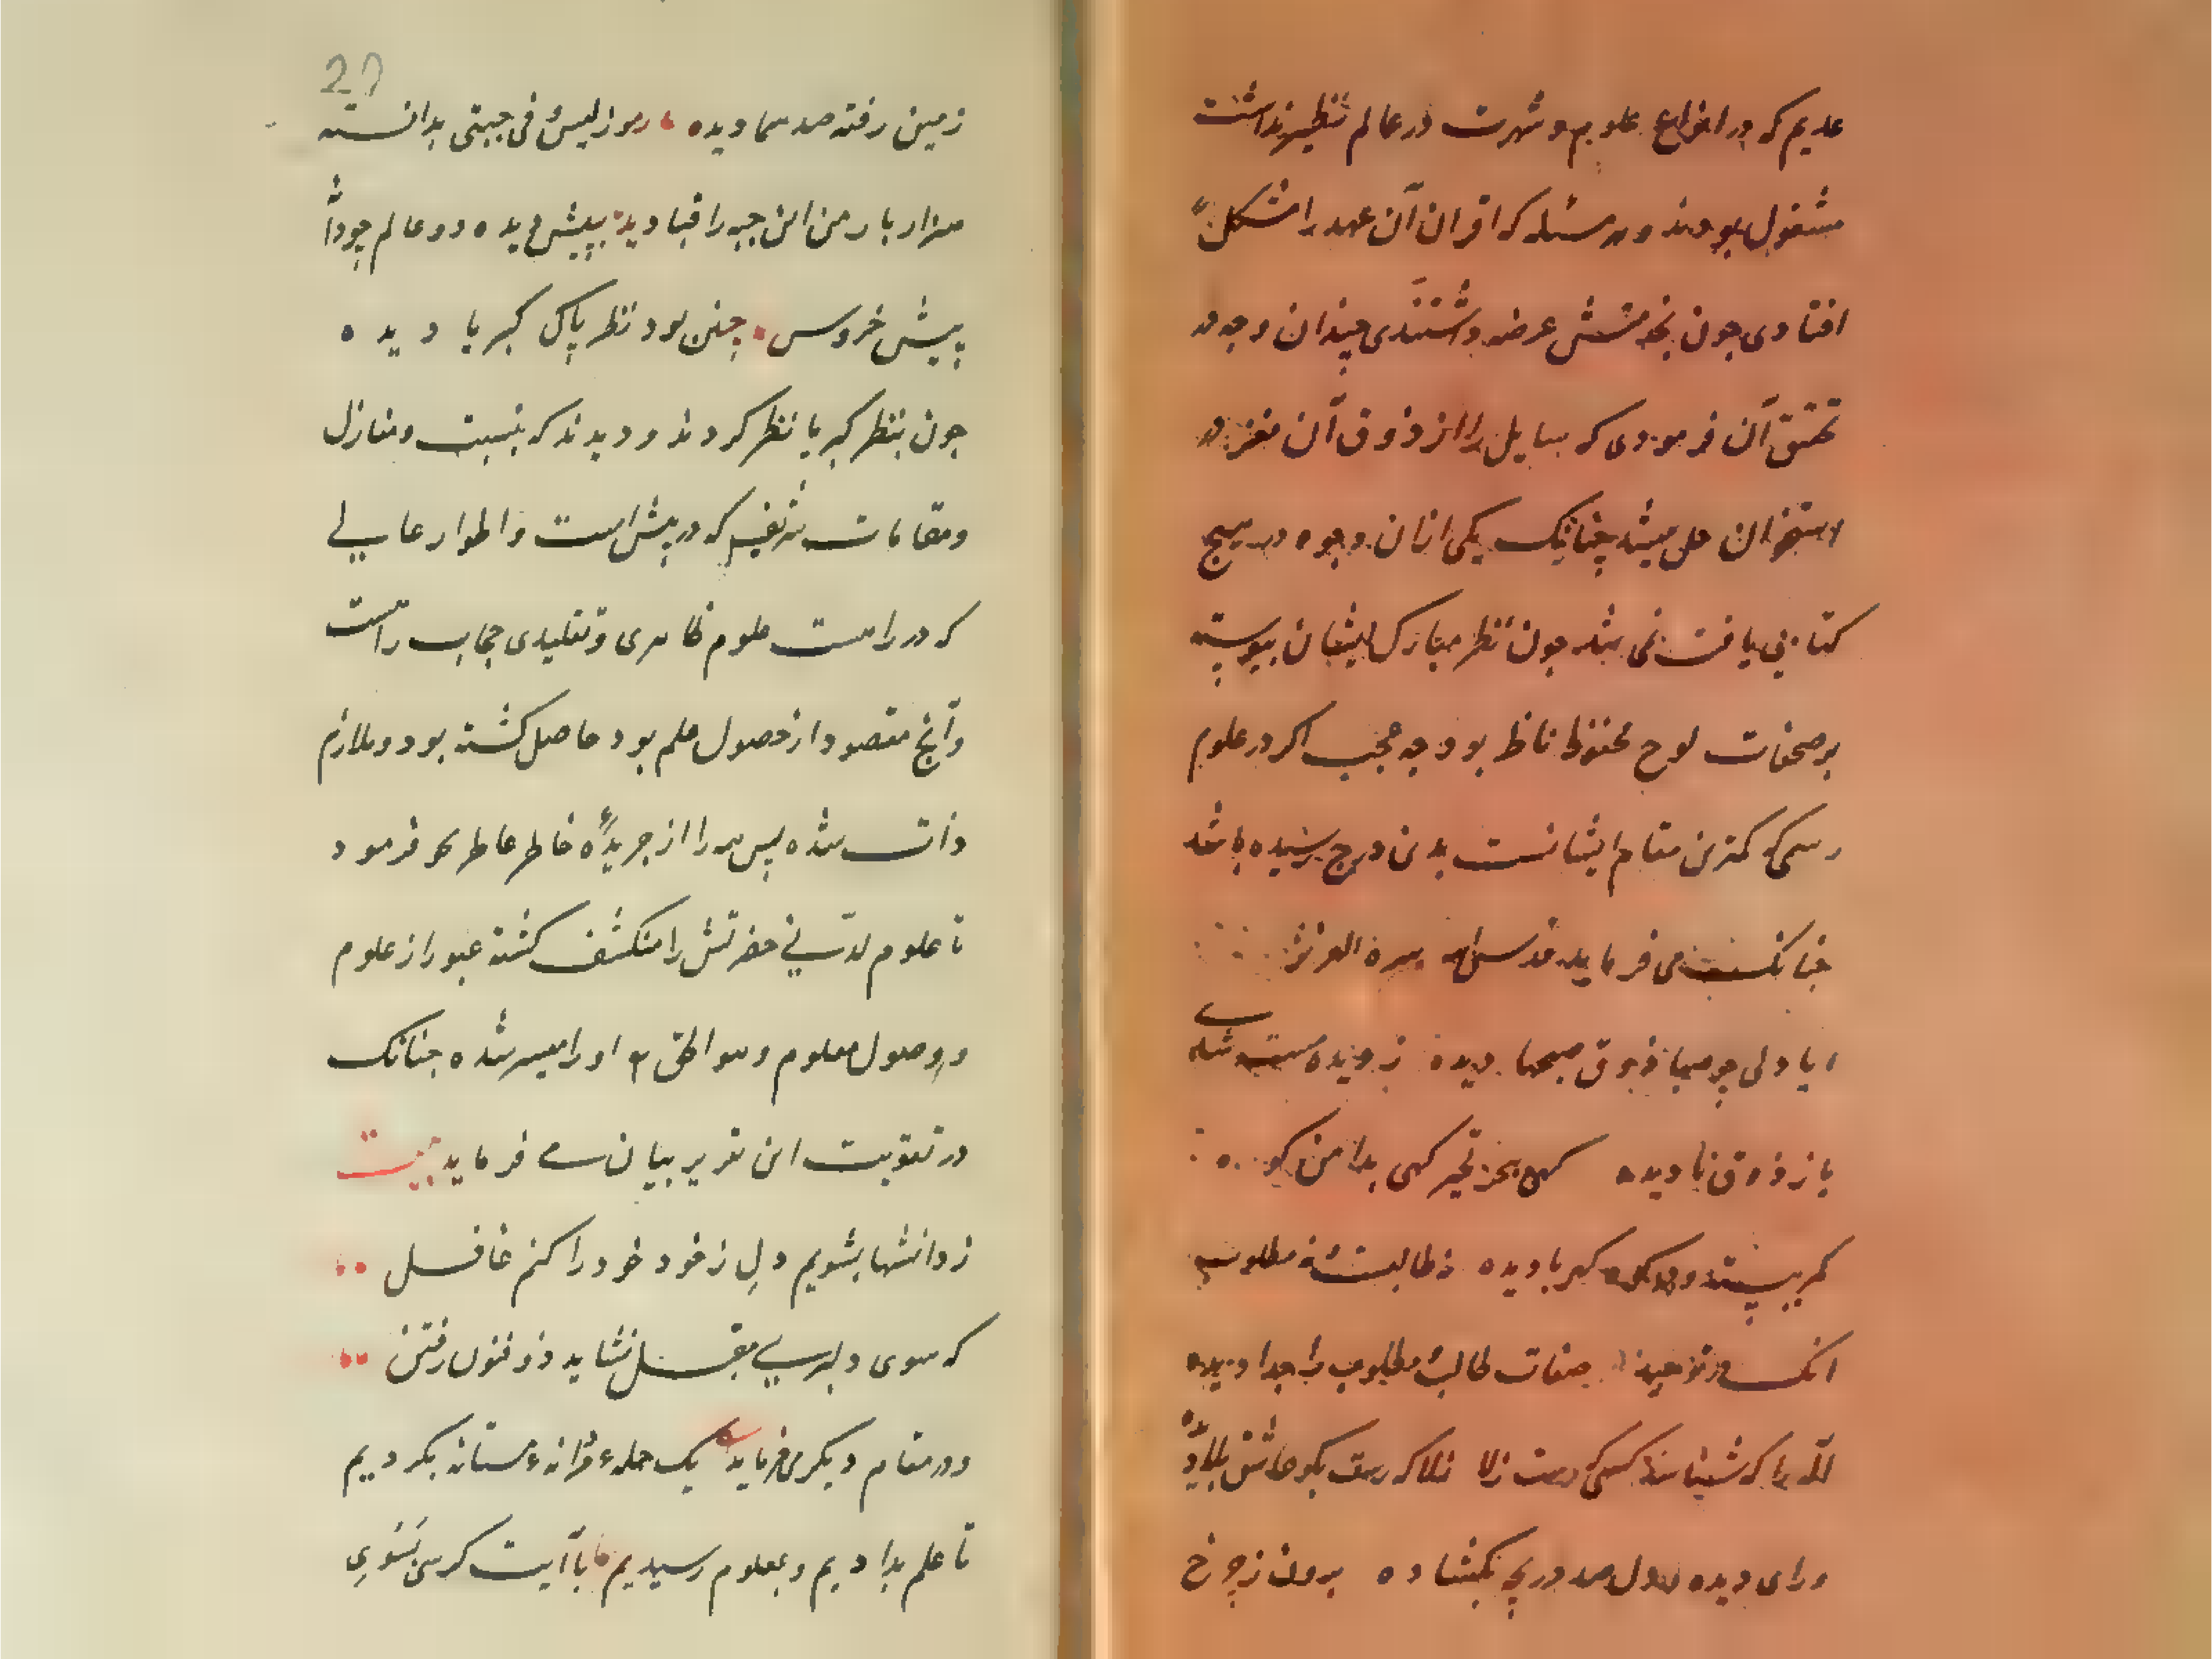 عدیم که در انواع علوم و شهرت در عالم نظیر نداشت
مشغول بودند و هر مسئله که اقران آن عهد را مشکل
افتادی جون بحضرتش عرضه داشتندی چندان وجه در
تحقیق آن فرمودی که سایل را از ذوق آن مغز در
استخوان حل میشد چنانک یکی ازان وجوه در هیچ
کتابی یافت نمی شد جون نظر مبارک ایشان پیوسته
بر صحفات لوح محفوظ ناظر بود چه عجب اکر در علوم
رسمی که کمترین مقام ایشانست بدین درج رسیده باشد
جنانکـ می فرماید قدس الله سره العزیز
ایا دلی چو صبا ذوق صبحها دیده ز دیده مست شدی
یا ز ذوق نادیده کهی ببحر تحیر کهی بدامن کوه
کمر ببسته و در کوه کهربا دیده نه طالبست و نه مطلوب
انک در توحید صفات طالب و مطلوب را جدا دیده
اله را که شناسد کسی که رست ز لا ز لا که رست بکو عاشق بلا دیده
ورای دیده و دل صد دریچه بکشاده برون ز چرخ
27
زمین رفته صد سما دیده رموز لیس فی جبتی بدانسته
هزار بار من این جبه را قبا دیده بپیش دیده دو عالم چو دانه
پیش خروس چنین بود نظر پاک کبریا دیده
جون بنظر کبریا نظر کردند و دیدند که بنسبت منازل
ومقامات شریفه که در پیش است و اطوار عالی
که در راست علوم ظاهری و تقلیدی حجاب راست
وآنچ مقصود از حصول علم بود حاصل کشته بود و ملازم
ذات شده پس همه را از جریدۀ خاطر عاطر محو فرمود
تا علوم لدنی حضرتش را منکشف کشته عبور از علوم
و وصول معلوم و هو الحق م او را میسر شده جنانک
در تقویت این تقریر بیان می فرماید بیت
ز دانشها بشویم دل ز خود خود را کنم غافل
که سوی دلبری مقبل نشاید ذوفنون رفتن
و در مقام دیکر می فرماید یک حمله و مستانه بکردیم
تا علم بدادیم و بمعلوم رسیدیم با آیت کرسی بسوی